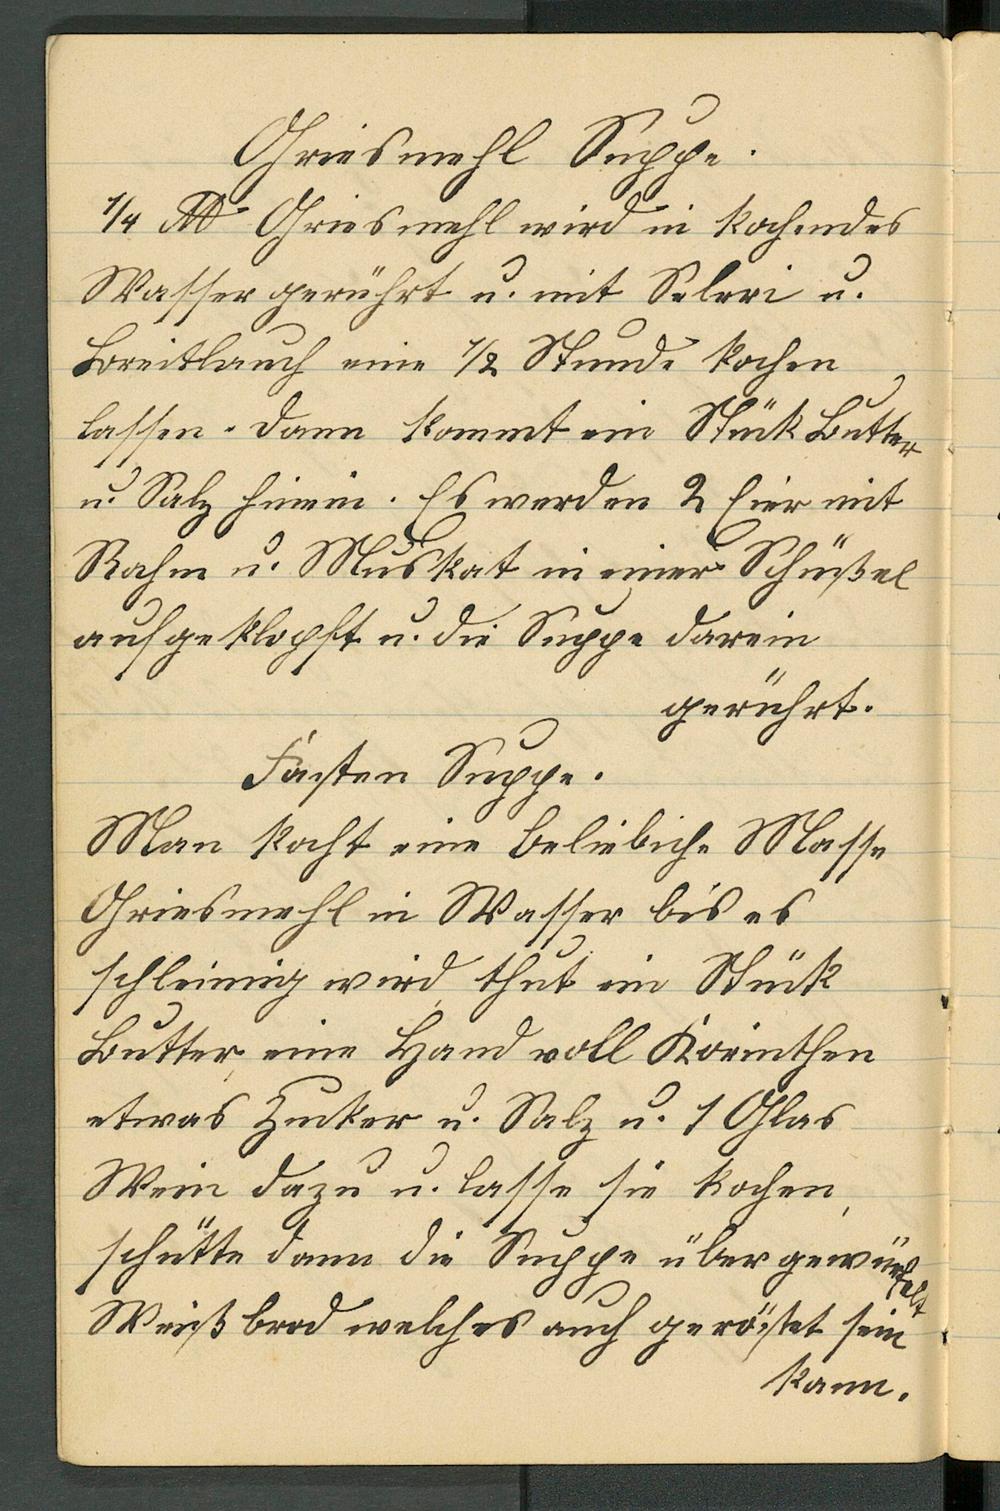 Griesmehl Suppe.
1/4 ℔ Griesmehl wird in kochendes
Wasser gerührt u. mit Seleri u.
Breitlauch eine 1/2 Stunde kochen
lassen. Dann kommt ein Stück Butter
u. Salz hinein. Es werden 2 Eier mit
Rahm u. Muskat in einer Schüßel
aufgeklopft u. die Suppe darein
gerührt.
Fasten Suppe.
Man kocht eine beliebiche Masse
Griesmehl in Wasser bis es
schleimig wird, thut ein Stück
Butter, eine Hand voll Korinthen
etwas Zucker u. Salz u. 1 Glas
Wein dazu u. lasse sie kochen,
schütte dann die Suppe über gewürfelt
Weißbrod welches auch geröstet sein
kann.